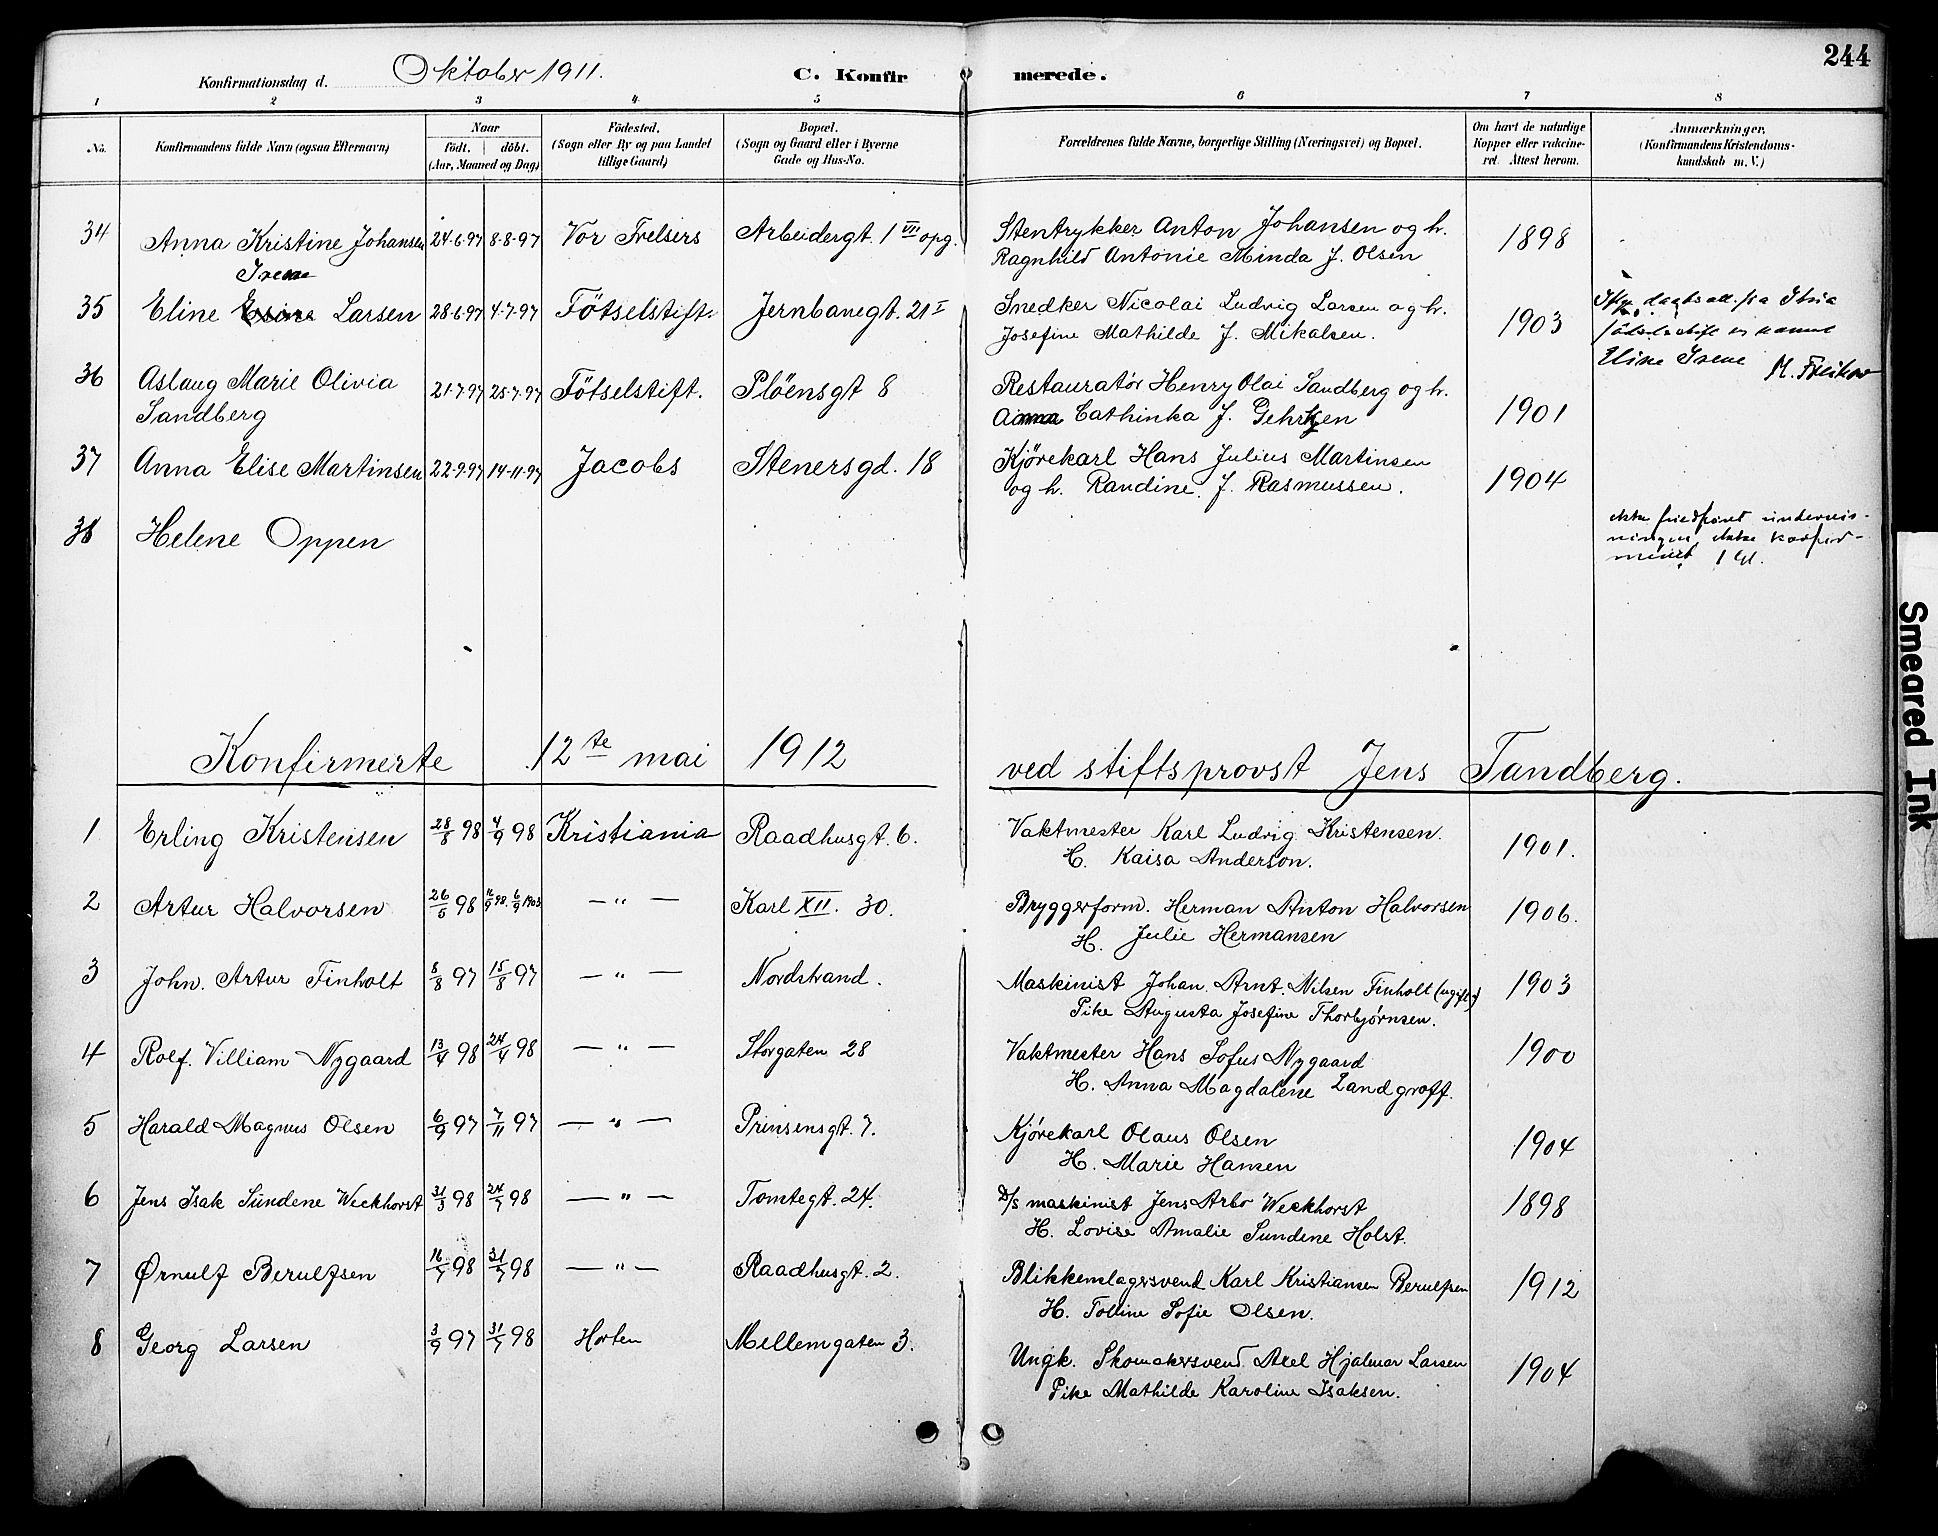 244
Konfirmationsdag d. Oktober 1911. C. Konfirmerede.
1 2 3 4 5 6 7 8
No. Konfirmandens fulde Navn (ogsaa Efternavn) Naar födt. döbt. (Aar, Maaned og Dag) Födested. (Sogn eller By og paa Landet tillige Gaard) Bopæl. (Sogn og Gaard eller i Byerne Gade og Hus-No. Forældrenes fulde Navne, borgerlige Stilling (Næringsvei) og Bopæl. Om havt de naturlige Kopper eller vakcineret. Attest herom. Anmærkninger. (Konfirmandens Kristendomskundskab m. V.)
34 Anna Kristine Johansen 24-6-97 8-8-97 Vor Frelsers Arbeidergt. 1 VII opg. Stentrykker Anton Johansen og h. 1898
Ragnhild Antonie Minda f. Olsen
Irene
35 Eline Larsen 28-6-97 4-7-97 Fötselstift. Jernbanegt. 21 I Snedker Nicolai Ludvig Larsen og h. 1903
Josefine Mathilde f. Mikalsen.
Eline Irene
36 Aslaug Marie Olivia 21-7-97 25-7-97 Fötselstift. Plöensgt 8 Restauratör Henry Olai Sandberg og h. 1901
Sandberg Cathinka f. Gehrken
37 Anna Elise Martinsen 22-9-97 14-11-97 Jacobs Stenersgd. 18 Kjörekarl Hans Julius Martinsen 1904
og h. Randine f. Rasmussen.
38 Helene Oppen ikke undervis-
ningen, ikke konfir-
meret
Konfirmerte 12te mai 1912 ved stiftsprovst Jens Tandberg.
1 Erling Kristensen 28/8 98 4/9 98 Kristiania Raadhusgt. 6. Vaktmester Karl Ludvig Kristensen. 1901.
H. Kaisa Anderson.
2 Artur Halvorsen 26/5 98 6/9 1903 — " — Karl XII. 30. Bryggerform. Herman Anton Halvorsen 1906.
H. Julie Hermansen
3 John. Artur Finholt 8/8 97 15/8 97 — " — Nordstrand. Maskinist Johan Arnt. Nilsen Finholt (ugift) 1903
Pike Augusta Josefine Thorbjørnsen.
4 Rolf. Villiam Nygaard 13/4 98 24/4 98 — " — Storgaten 28 Vaktmester Hans Sofus Nygaard 1900
H. Anna Magdalene Landgroff.
5 Harald Magnus Olsen 6/9 97 7/11 97 — " — Prinsensgt. 7. Kjørekarl Olaus Olsen 1904
H. Marie Hansen
6 Jens Isak Sundene Weckhorst 31/3 98 24/7 98 — " — Tomtegt. 24. D/s maskinist Jens Arbo Weckhorst 1898
H. Lovise Amalie Sundene Holst.
7 Ørnulf Berulfsen 16/7 98 31/7 98 — " — Raadhusgt. 2. Blikkenslagersvend Karl Kristiansen Berulfsen 1912
H. Tolline Sofie Olsen.
8 Georg Larsen 3/9 97 31/7 98 Horten Mellemgaten 3. Ungk. Skomakersvend Axel Hjalmar Larsen 1904
Pike Mathilde Karoline Isaksen.
Smeared Ink